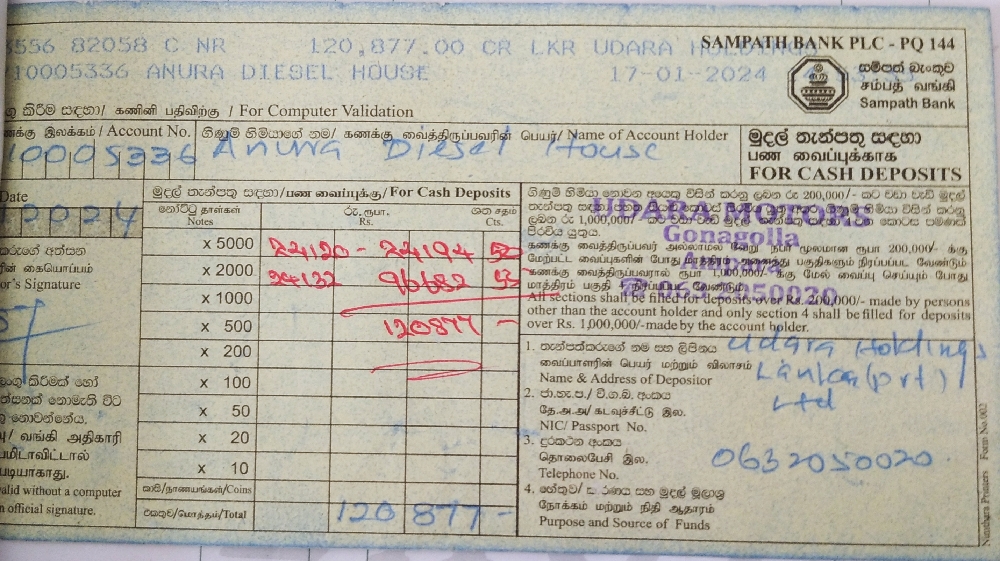 5556 82058 C NR 120,877.00 CR LKR UDARA HOLDINGS
10005336 ANURA DIESEL HOUSE 17-01-2024
SAMPATH BANK PLC - PQ 144
සම්පත් බැංකුව
சம்பத் வங்கி
Sampath Bank
කිරීම සඳහා/ கணினி பதிவிற்கு / For Computer Validation
கணக்கு இலக்கம் / Account No.
ගිණුම් හිමියාගේ නම/ கணக்கு வைத்திருப்பவரின் பெயர்/ Name of Account Holder
10005336 Anura Diesel House
මුදල් තැන්පතු සඳහා
பண வைப்புக்காக
FOR CASH DEPOSITS
Date
2024
කරුගේ අත්සන
ரின் கையொப்பம்
or's Signature
කිරීමක් හෝ
නොමැති විට
නොවන්නේය.
/ வங்கி அதிகாரி
மிடாவிட்டால்
டியாகாது.
valid without a computer
n official signature.
මුදල් තැන්පතු සඳහා/பண வைப்புக்கு/For Cash Deposits
නෝට්ටු தாள்கள்
Notes
රු. ரூபா.
Rs.
ශත சதம்
Cts.
x 5000 24120 - 24194 50
x 2000 24132 96682 55
x 1000
x 500 120877 -
x 200
x 100
x 50
x 20
x 10
කාසි/நாணயங்கள்/Coins
එකතුව/மொத்தம்/Total 120 877 -
UDARA MOTORS
Gonagolla
0632050020
ගිණුම් හිමියා නොවන අයකු විසින් කරනු ලබන රු 200,000/- කට වඩා වැඩි මුදල්
රු 1,000,000/-
පිරවිය යුතුය.
கணக்கு வைத்திருப்பவர் அல்லாமல் வேறு நபர் மூலமான ரூபா 200,000/- க்கு
மேற்பட்ட வைப்புகளின் போது அனைத்து பகுதிகளும் நிரப்பப்பட வேண்டும்
கணக்கு வைத்திருப்பவரால் ரூபா 1,000,000/- க்கு மேல் வைப்பு செய்யும் போது
மாத்திரம் பகுதி 4 நிரப்பப்பட வேண்டும்.
All sections shall be filled for deposits over Rs. 200,000/- made by persons
other than the account holder and only section 4 shall be filled for deposits
over Rs. 1,000,000/-made by the account holder.
1. තැන්පත්කරුගේ නම සහ ලිපිනය Udara Holdings
வைப்பாளரின் பெயர் மற்றும் விலாசம் Lanka (pvt)
Name & Address of Depositor Ltd
2. ජා.හැ.ප./ වි.ග.බ. අංකය
தே.அ.அ/ கடவுச்சீட்டு இல.
NIC/ Passport No.
3. දුරකථන අංකය
தொலைபேசி இல. 0632050020
Telephone No.
4. හේතුව/ සහ මුදල් මූලාශ්‍ර
நோக்கம் மற்றும் நிதி ஆதாரம்
Purpose and Source of Funds
Printers Form No.002